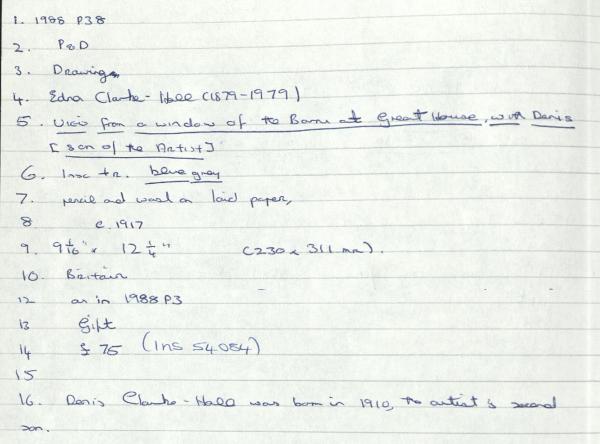 1. 1988 P38
2. P&D
3. Drawing
4. Edna Clarke-Hall (1879-1979)
5. View from a window of the Barn at Great House, with Denis
[son of the Artist]
6. Insc t.r. blue grey
7. pencil and wash on laid paper,
8 c. 1917
9. 9 1/16" x 12 1/4" (230 x 311 mm).
10. Britain
12 as in 1988 P3
13 Gift
14 £ 75 (Ins 54054)
15
16. Denis Clarke-Hall was born in 1910, the artist's second
son.